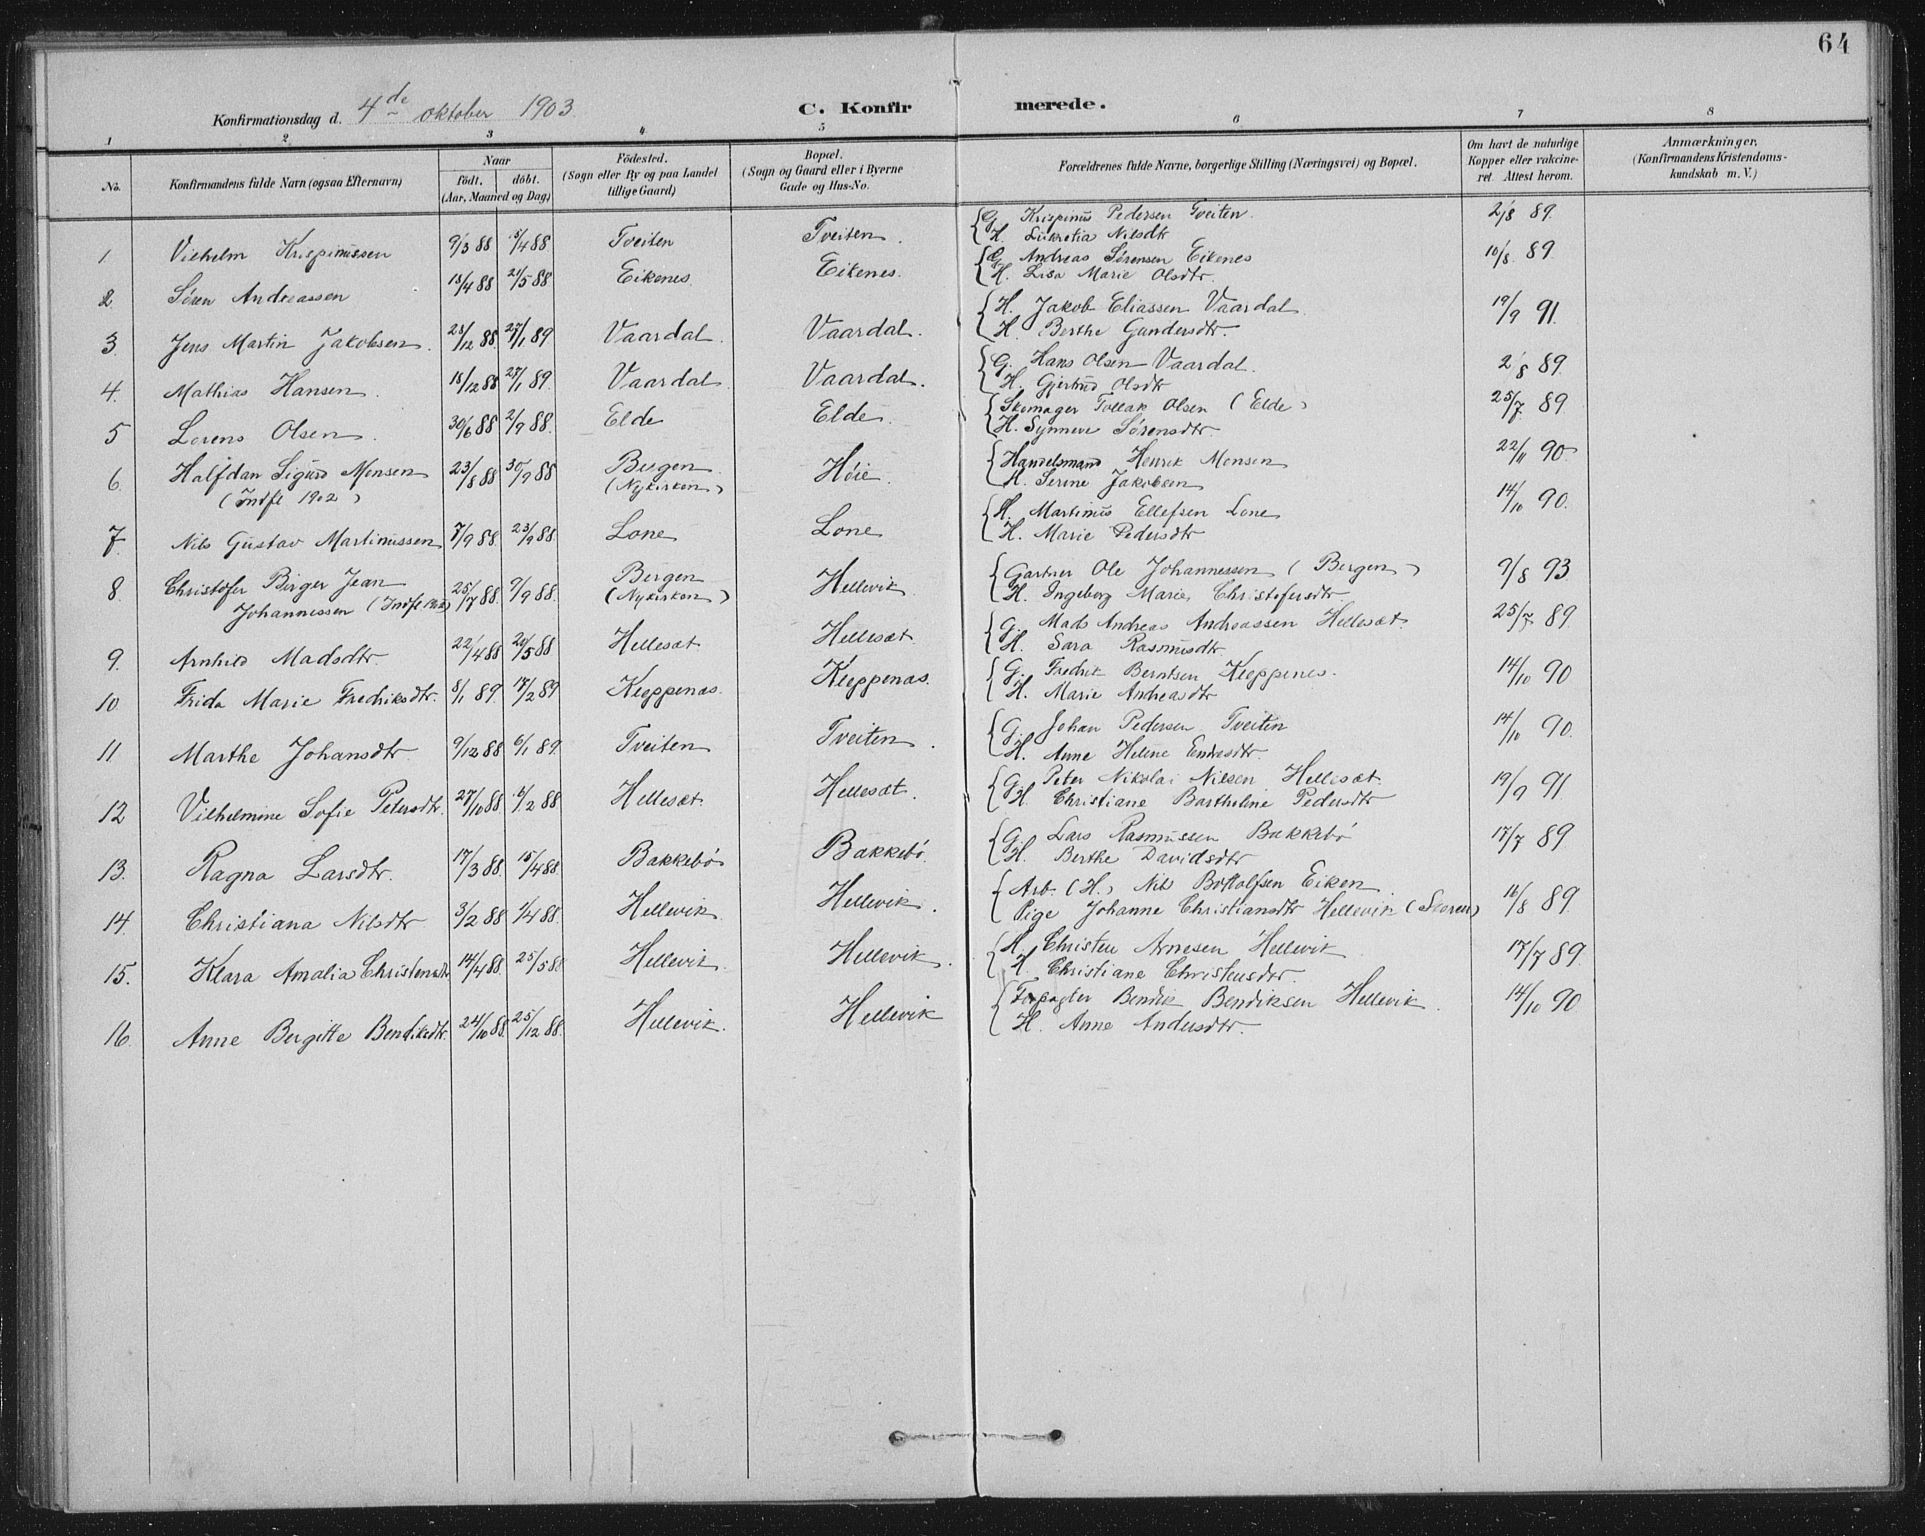 64
Konfirmationsdag d. 4de oktober 1903.
C. Konfirmerede.
1 2 3 4 5 6 7 8
No. Konfirmandens fulde Navn (ogsaa Efternavn) Naar födt, döbt. (Aar, Maaned og Dag) Födested. (Sogn eller By og paa Landet tillige Gaard) Bopæl. (Sogn og Gaard eller i Byerne Gade og Hus-No. Forældrenes fulde Navne, borgerlige Stilling (Næringsvei) og Bopæl. Om havt de naturlige Kopper eller vakcineret. Attest herom. Anmærkninger. (Konfirmandens Kristendomskundskab m. V.)
1 Vilhelm Krispinussen 9/3 88 /4 88 Tveiten Tveiten. G. Krispinus Pedersen Tveiten. 2/8 89.
H. Lukretia Nilsdtr
2 Sören Andreassen 18/4 88 21/5 88 Eikenes Eikenes. G. Andreas Sörensen Eikenes 10/8 89.
H. Lisa Marie Olsdtr.
3. Jens Martin Jakobsen. 23/12 88. 27/1 89 Vaardal. Vaardal. H. Jakob Eliassen Vaardal. 19/9 91.
H. Berthe Gundersdtr.
4. Mathias Hansen. 18/12 88 27/1 89. Vaardal. Vaardal. G. Hans Olsen Vaardal. 2/8 89
H. Gjertrud Olsdtr
5 Lorens Olsen. 30/6 88 2/9 88. Elde Elde. Skomager Tollak Olsen (Elde) 25/7 89
H. Synneve Sörensdtr.
6. Halfdan Sigurd Monsen 23/8 88 30/9 88 Bergen Höie. Handelsmand Henrik Monsen 22/11 90.
(Indfl 1902) (Nykirken) H. Serine Jakobsen
7. Nils Gustav Martinussen 7/9 88. 23/9 88. Lone Lone H. Martinus Ellefsen Lone 14/10 90.
H. Marie Pedersdtr
8. Christofer Birger Jean 25/7 88. 9/9 88. Bergen Hellevik Gartner Ole Johannessen (Bergen) 9/8 93
Johannessen (Indfl) (Nykirken) H. Ingeborg Marie Christofersdtr.
9. Arnhild Madsdtr. 22/4 88 20/5 88 Hellesæt Hellesæt G. Mads Andreas Andreassen Hellesæt. 25/7 89.
H. Sara Rasmusdtr.
10 Frida Marie Fredriksdtr. 8/1 89. 17/2 89 Kleppenæs Kleppenæs. G. Fredrik Berntsen Kleppenes. 14/10 90
H. Marie Andreasdtr
11 Marthe Johansdtr 9/12 88 6/1 89. Tveiten Tveiten. G. Johan Pedersen Tveiten 14/10 90.
H. Anne Helene Endresdtr.
12 Vilhelmine Sofie Petersdtr. 27/10 88. /2 88 Hellesæt. Hellesæt. G. Peter Nikolai Nilsen Hellesæt. 19/9 91.
H. Christiane Bartholine Pedersdtr
13. Ragna Larsdtr. 17/3 88. 15/4 88. Bakkebö Bakkebö. G. Lars Rasmussen Bakkebö 17/7 89
H. Berthe Davidsdtr
14. Christiana Nilsdtr. 3/2 88 1/4 88. Hellevik. Hellevik. Arb. (H.) Nils Bottolfsen Eiken. 16/8 89.
Pige Johanne Christiansdtr Hellevik
15. Klara Amalia Christensdtr 14/4 88. 25/5 88 Hellevik. Hellevik. H. Christen Arnesen Hellevik 17/7 89.
H. Christiane Christensdtr.
16. Anne Bergitte Bendiksdtr. 24/10 88. 25/12 88. Hellevik. Hellevik Forpagter Bendik Bendiksen Hellevik. 14/10 90
H. Anne Andersdtr.